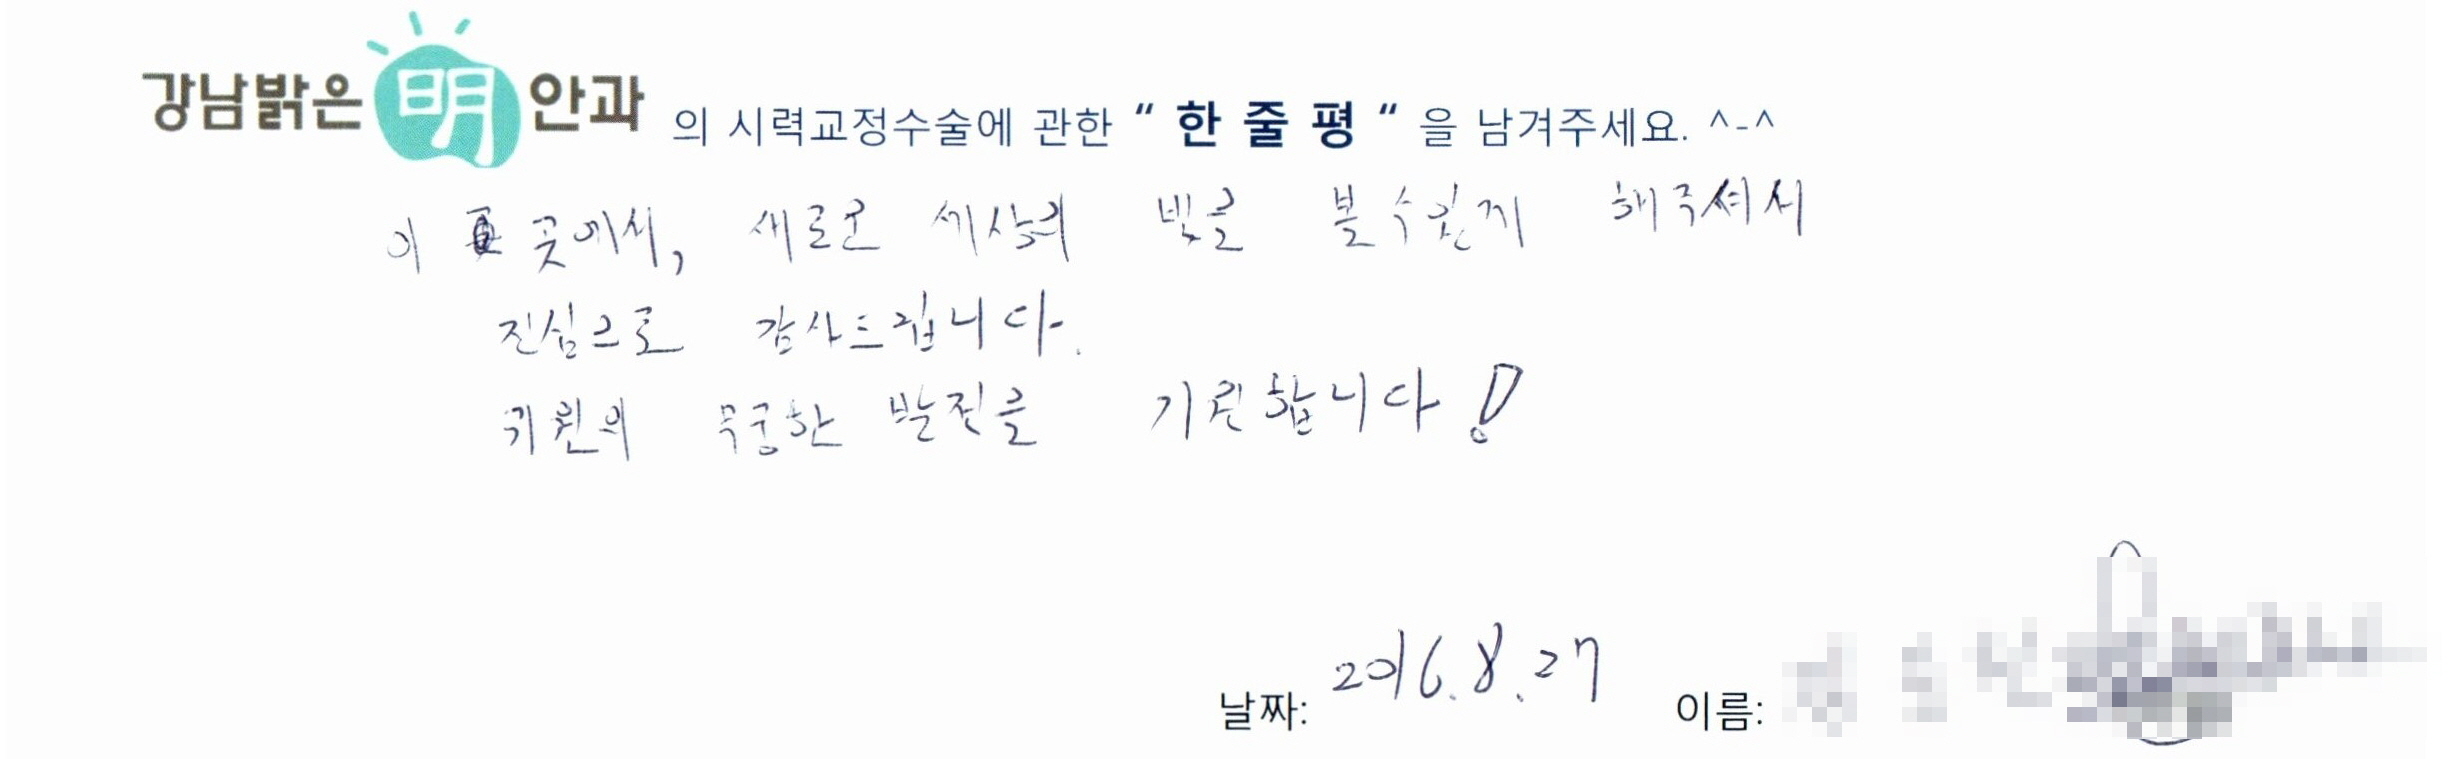 강남밝은 明 안과 의 시력교정수술에 관한 “ 한 줄 평 “ 을 남겨주세요. ^-^
이 곳에서, 새로운 세상의 빛을 볼수있게 해주셔서
진심으로 감사드립니다.
귀원의 무궁한 발전을 기원합니다!
날짜: 2016.8.27 이름: